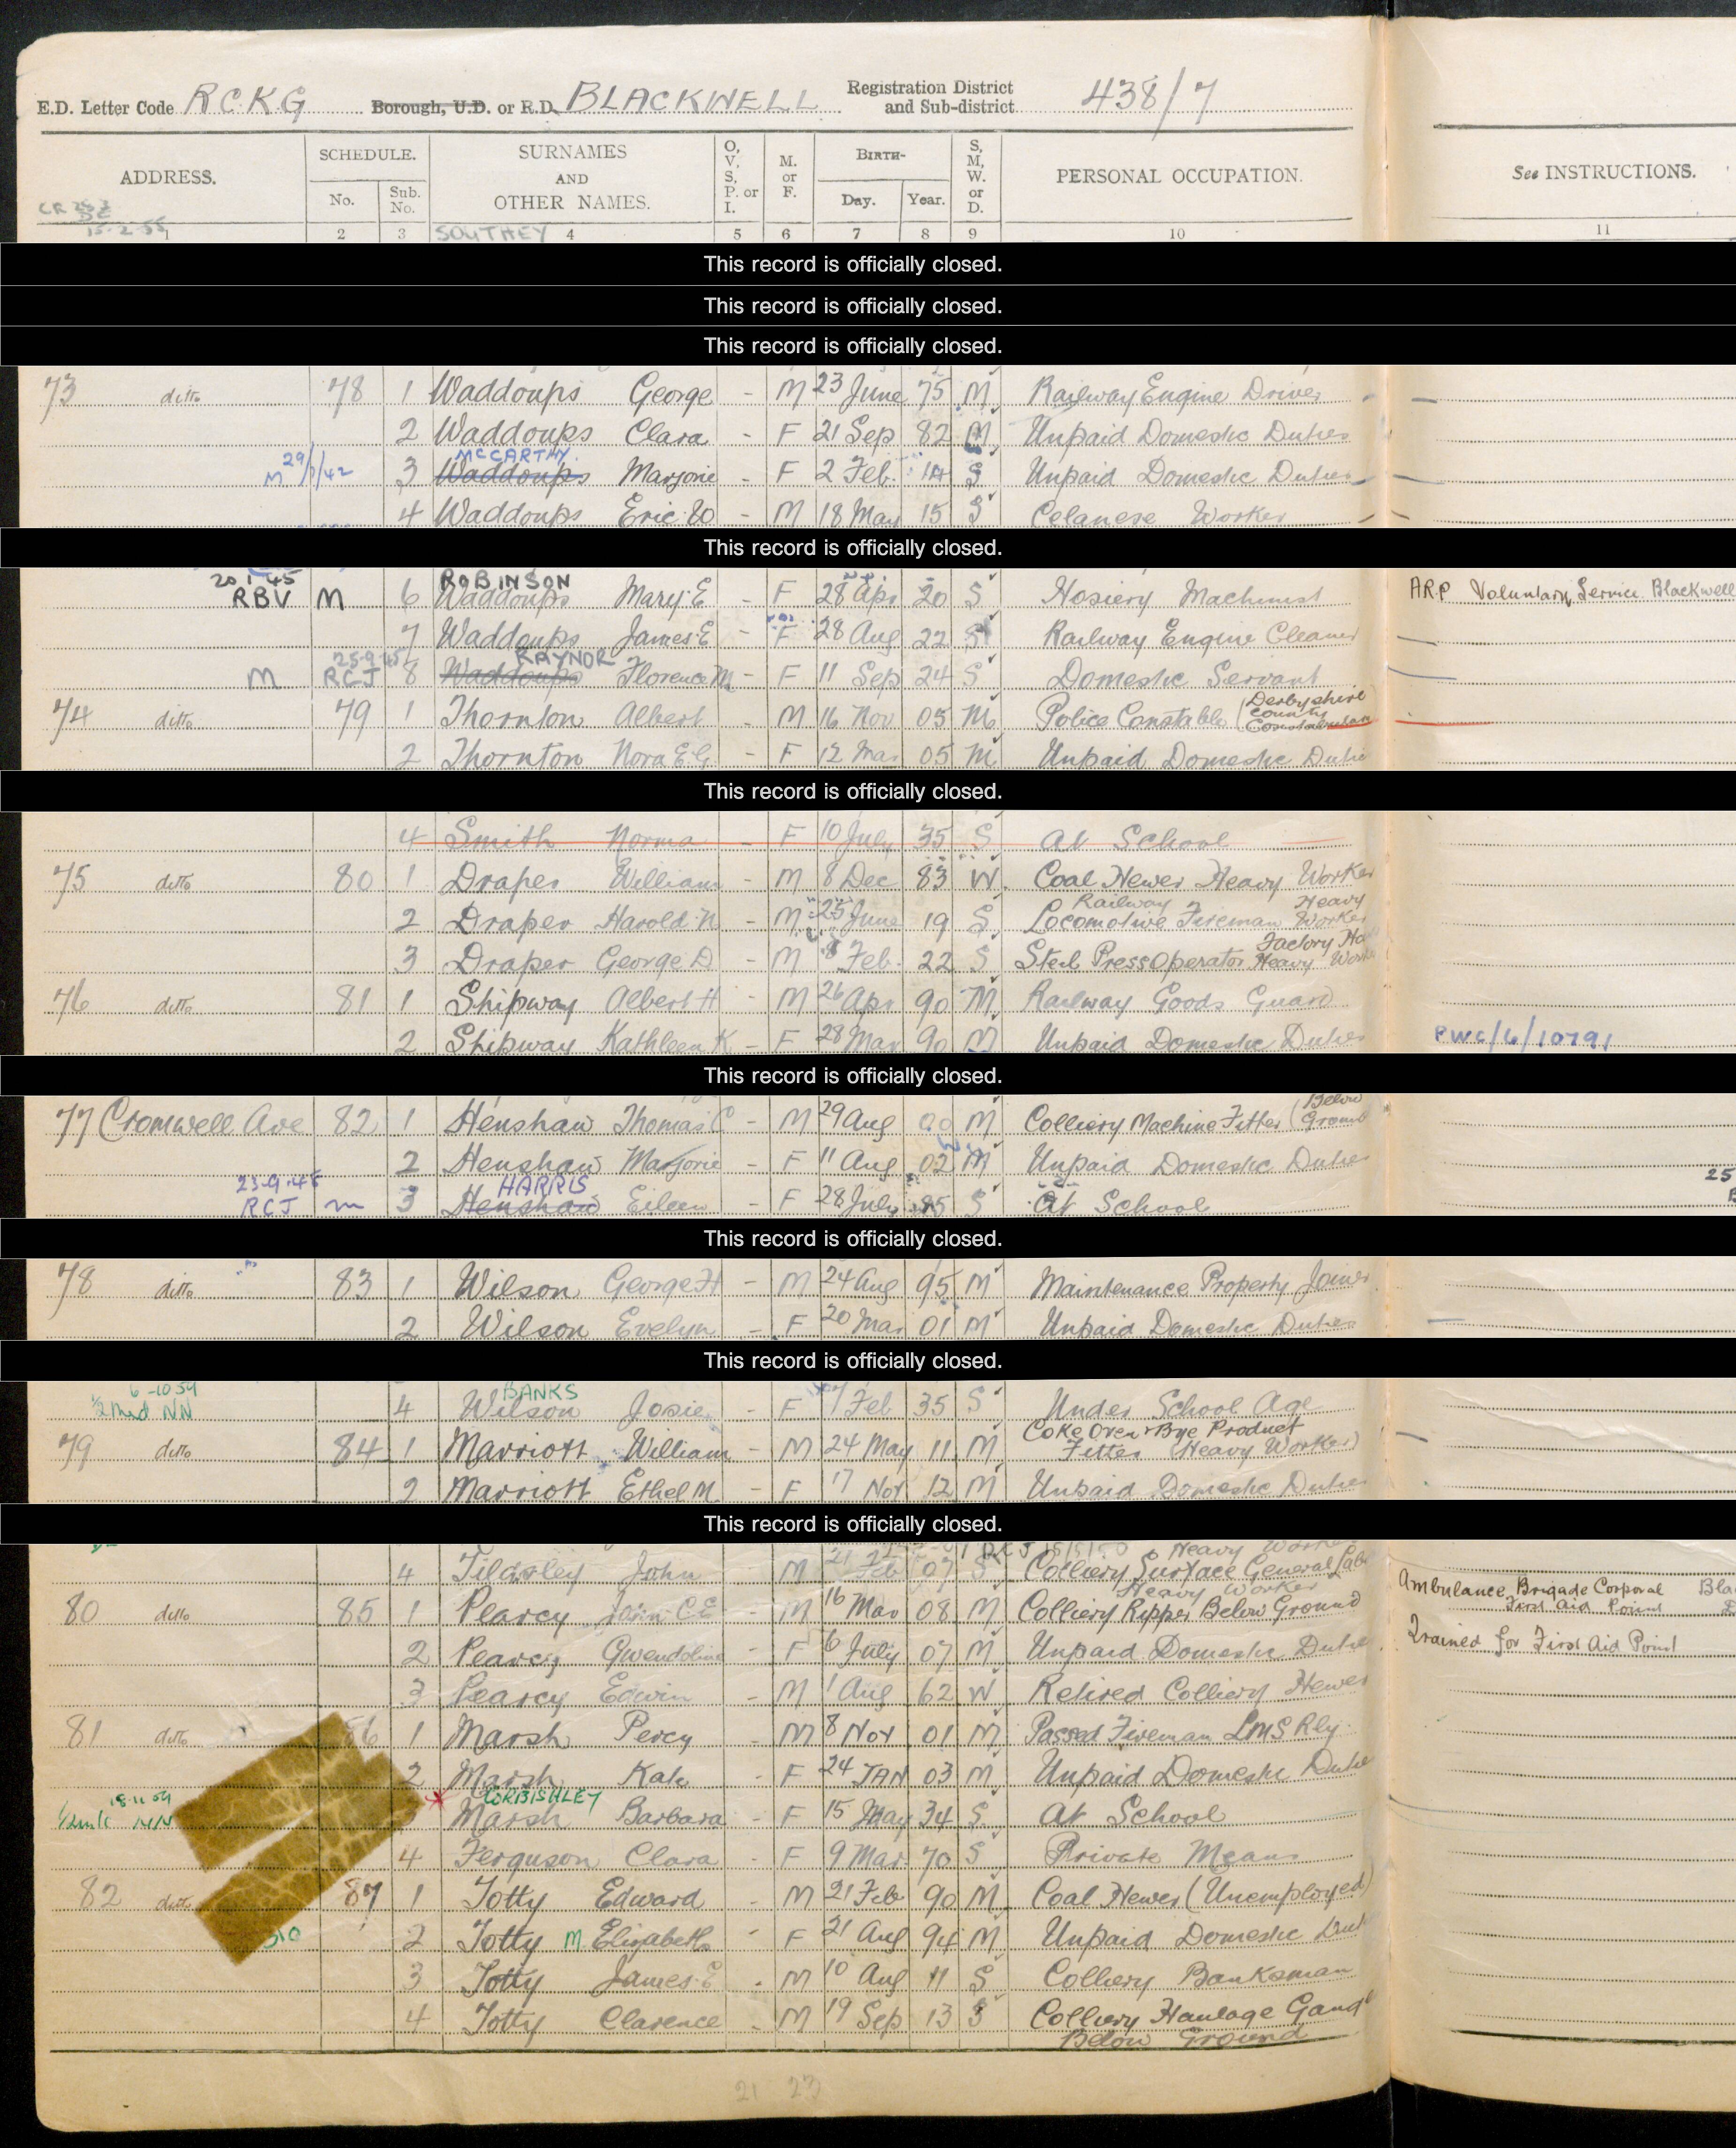 E.D. Letter Code R.C.K.G Borough, U.D. or R.D. BLACKWELL Registration District and Sub-district 438/7
ADDRESS. SCHEDULE. No. Sub. No. SURNAMES AND OTHER NAMES. O, V, S, P. or I. M. or F. BIRTH- Day. Year. S, M, W. or D. PERSONAL OCCUPATION. See INSTRUCTIONS.
15-2-55
1 2 3 SOUTHEY 4 5 6 7 8 9 10 11
This record is officially closed.
This record is officially closed.
This record is officially closed.
73 ditto 78 1 Waddoups George - M 23 June 75 M Railway Engine Driver
2 Waddoups Clara - F 21 Sep 82 M Unpaid Domestic Duties
MCCARTHY.
M 3 Waddoups Marjorie - F 2 Feb. 14 S Unpaid Domestic Duties
4 Waddoups Eric W - M 18 May 15 S Celanese Worker
This record is officially closed.
20 1 45 ROBINSON
RBV M 6 Waddoups Mary E - F 28 Apr 20 S Hosiery Machinist ARP Voluntary Service Blackwell
7 Waddoups James E - F 28 Aug 22 S Railway Engine Cleaner
25-9-45 RAYNOR
M RCJ 8 Waddoups Florence M - F 11 Sep 24 S Domestic Servant
74 ditto 79 1 Thornton Albert - M 16 Nov 05 M Police Constable (Derbyshire County Constabulary
2 Thornton Nora E.G - F 12 Mar 05 M Unpaid Domestic Dutie
This record is officially closed.
4 Smith Norma - F 10 July 35 S At School
75 ditto 80 1 Draper William - M 8 Dec 83 W. Coal Hewer Heavy Worker
Railway Heavy
2 Draper Harold N - M 25 June 19 S Locomotive Fireman Worker
Factory
3 Draper George D - M 8 Feb. 22 S Steel Press Operator Heavy Work
76 ditto 81 1 Shipway Albert H - M 26 Apr 90 M Railway Goods Guard
2 Shipway Kathleen K - F 28 Mar 90 M Unpaid Domestic Duties PWC/6/10791
This record is officially closed.
77 Cromwell Ave 82 1 Henshaw Thomas C - M 29 Aug 00 M Colliery Machine Fitter (Below Ground
2 Henshaw Marjorie - F 11 Aug 02 M Unpaid Domestic Dutie
HARRIS 25
RCJ m 3 Henshaw Eileen - F 28 July S At School
This record is officially closed.
78 ditto 83 1 Wilson George H - M 24 Aug 95 M Maintenance Property Joiner
2 Wilson Evelyn - F 20 Mar 01 M Unpaid Domestic Duties
This record is officially closed.
6-10 54 BANKS
NN 4 Wilson Josie - F 7 Feb 35 S Under School Age
Coke Oven & Bye Product
79 ditto 84 1 Marriott William - M 24 May 11 M Fitter (Heavy Worker)
2 Marriott Ethel M. - F 17 Nov 12 M Unpaid Domestic Duties
This record is officially closed.
Heavy Worker
4 Tildsley John M 21 Feb 07 S Colliery Surface General Lab
Heavy Worker Ambulance Brigade Corporal
80 ditto 85 1 Pearcy John C E - M 16 Mar 08 M Colliery Ripper Below Ground First Aid Point
2 Pearcy Gwendoline - F 6 July 07 M Unpaid Domestic Dutie Trained for First Aid Point
3 Pearcy Edwin - M 1 Aug 62 W Retired Colliery Hewer
81 ditto 86 1 Marsh Percy - M 8 Nov 01 M Passed Fireman LMS Rly.
2 Marsh Kate - F 24 JAN 03 M Unpaid Domestic Dutie
CORBISHLEY
Marsh Barbara - F 15 May 34 S At School
4 Ferguson Clara - F 9 Mar 70 S Private Means
82 ditto 87 1 Totty Edward - M 21 Feb 90 M Coal Hewer (Unemployed)
2 Totty M Elizabeth - F 21 Aug 94 M Unpaid Domestic Duti
3 Totty James E - M 10 Aug 11 S Colliery Banksman
4 Totty Clarence - M 19 Sep 13 S Colliery Haulage Gang
Below Ground
21 23